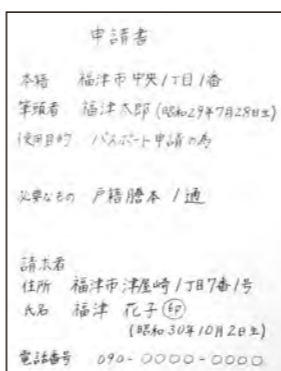 申請書
本籍 福津市中央1丁目1番
筆頭者 福津太郎(昭和29年7月28日生)
使用目的 パスポート申請の為
必要なもの 戸籍謄本 1通
請求者
住所 福津市津屋崎1丁目7番1号
氏名 福津 花子 印
(昭和30年10月2日生)
電話番号 090-0000-0000